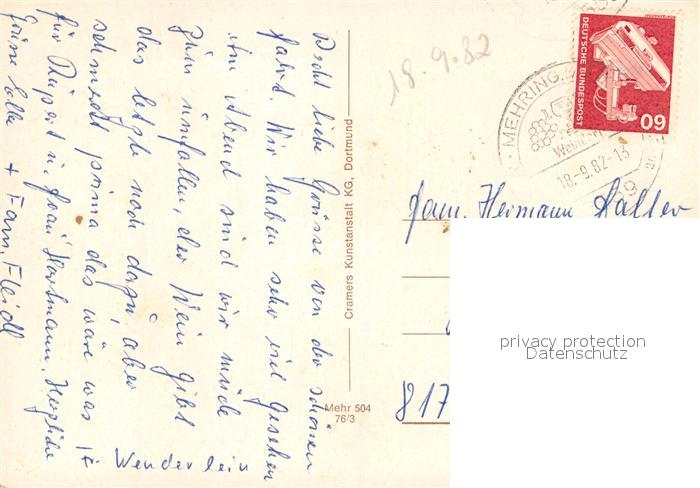 Recht liebe Grüsse von der schönen
Fahrt. Wir haben sehr viel gesehen
am Abend sind wir müde
zum umfallen, der Wein gibt
das letzte noch dazu, aber
schmeckt prima das wäre was
für Rupert u. Frau Hartmann. Herzliche
Grüße + Fam. Fleidl
Wenderlein
Cramers Kunstanstalt KG, Dortmund
Mehr 504
76/3
18.9.82
DEUTSCHE BUNDESPOST
60
MEHRING
18.-9.82-13
Fam. Hermann
817
privacy protection
Datenschutz